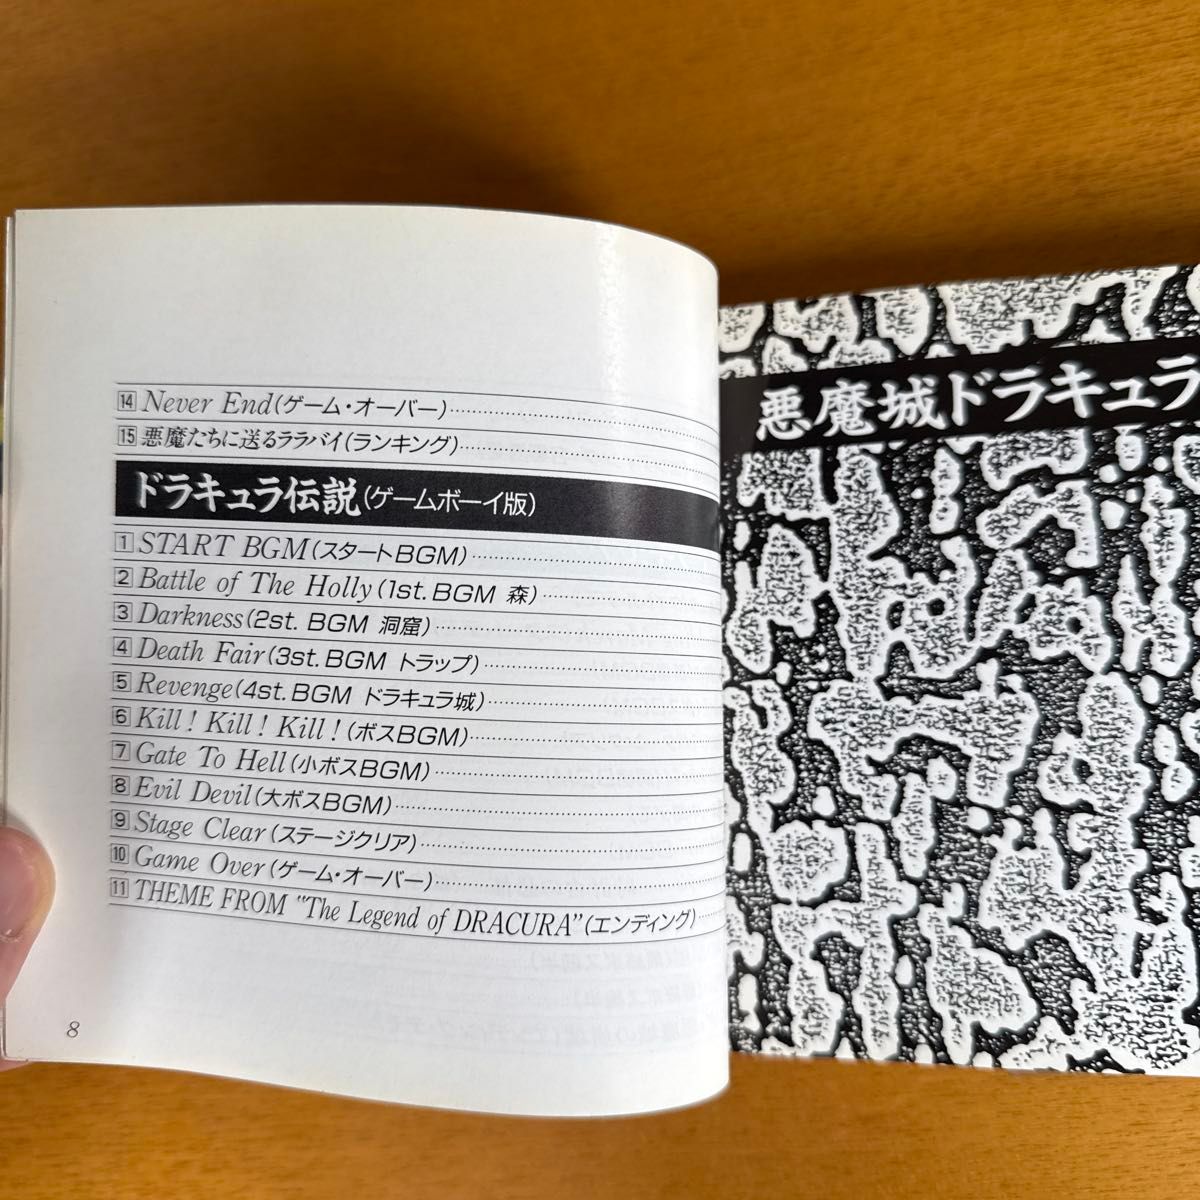 14 Never End(ゲーム・オーバー)
15 悪魔たちに送るララバイ(ランキング)
ドラキュラ伝説(ゲームボーイ版)
1 START BGM(スタートBGM)
2 Battle of The Holly(1st. BGM 森)
3 Darkness(2st. BGM 洞窟)
4 Death Fair(3st. BGM トラップ)
5 Revenge(4st. BGM ドラキュラ城)
6 Kill! Kill! Kill!(ボスBGM)
7 Gate To Hell(小ボスBGM)
8 Evil Devil(大ボスBGM)
9 Stage Clear(ステージクリア)
10 Game Over(ゲーム・オーバー)
11 THEME FROM "The Legend of DRACURA"(エンディング)
8
悪魔城ドラキュラ